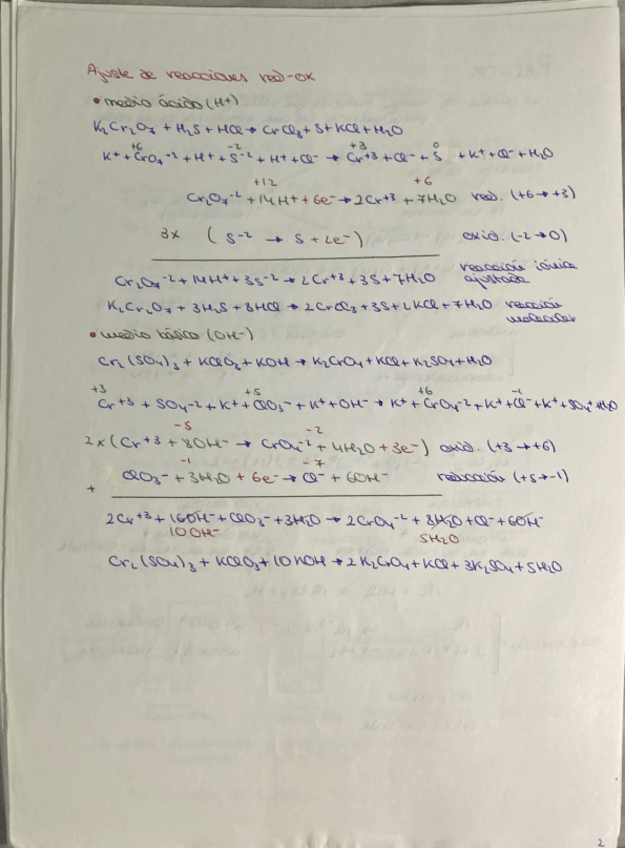 Ajuste de reacciones red-ox
• medio ácido (H+)
K₂Cr₂O₇ + H₂S + HCl → CrCl₃ + S + KCl + H₂O
+6 -2 +3 0
K⁺ + CrO₇⁻² + H⁺ + S⁻² + H⁺ + Cl⁻ → Cr⁺³ + Cl⁻ + S + K⁺ + Cl⁻ + H₂O
+12 +6
Cr₂O₇⁻² + 14H⁺ + 6e⁻ → 2Cr⁺³ + 7H₂O red. (+6 → +3)
3x (S⁻² → S + 2e⁻) oxid. (-2 → 0)
Cr₂O₇⁻² + 14H⁺ + 3S⁻² → 2Cr⁺³ + 3S + 7H₂O reacción iónica ajustada
K₂Cr₂O₇ + 3H₂S + 8HCl → 2CrCl₃ + 3S + 2KCl + 7H₂O reacción molecular
• medio básico (OH⁻)
Cr₂(SO₄)₃ + KClO₃ + KOH → K₂CrO₄ + KCl + K₂SO₄ + H₂O
+3 +5 +6 -1
Cr⁺³ + SO₄⁻² + K⁺ + ClO₃⁻ + K⁺ + OH⁻ → K⁺ + CrO₄⁻² + K⁺ + Cl⁻ + K⁺ + SO₄⁼ + H₂O
-5 -2
2x (Cr⁺³ + 8OH⁻ → CrO₄⁻² + 4H₂O + 3e⁻) oxid. (+3 → +6)
-1 -7
ClO₃⁻ + 3H₂O + 6e⁻ → Cl⁻ + 6OH⁻ reducción (+5 → -1)
+
2Cr⁺³ + 16OH⁻ + ClO₃⁻ + 3H₂O → 2CrO₄⁻² + 8H₂O + Cl⁻ + 6OH⁻
10OH⁻ 5H₂O
Cr₂(SO₄)₃ + KClO₃ + 10KOH → 2K₂CrO₄ + KCl + 3K₂SO₄ + 5H₂O
2